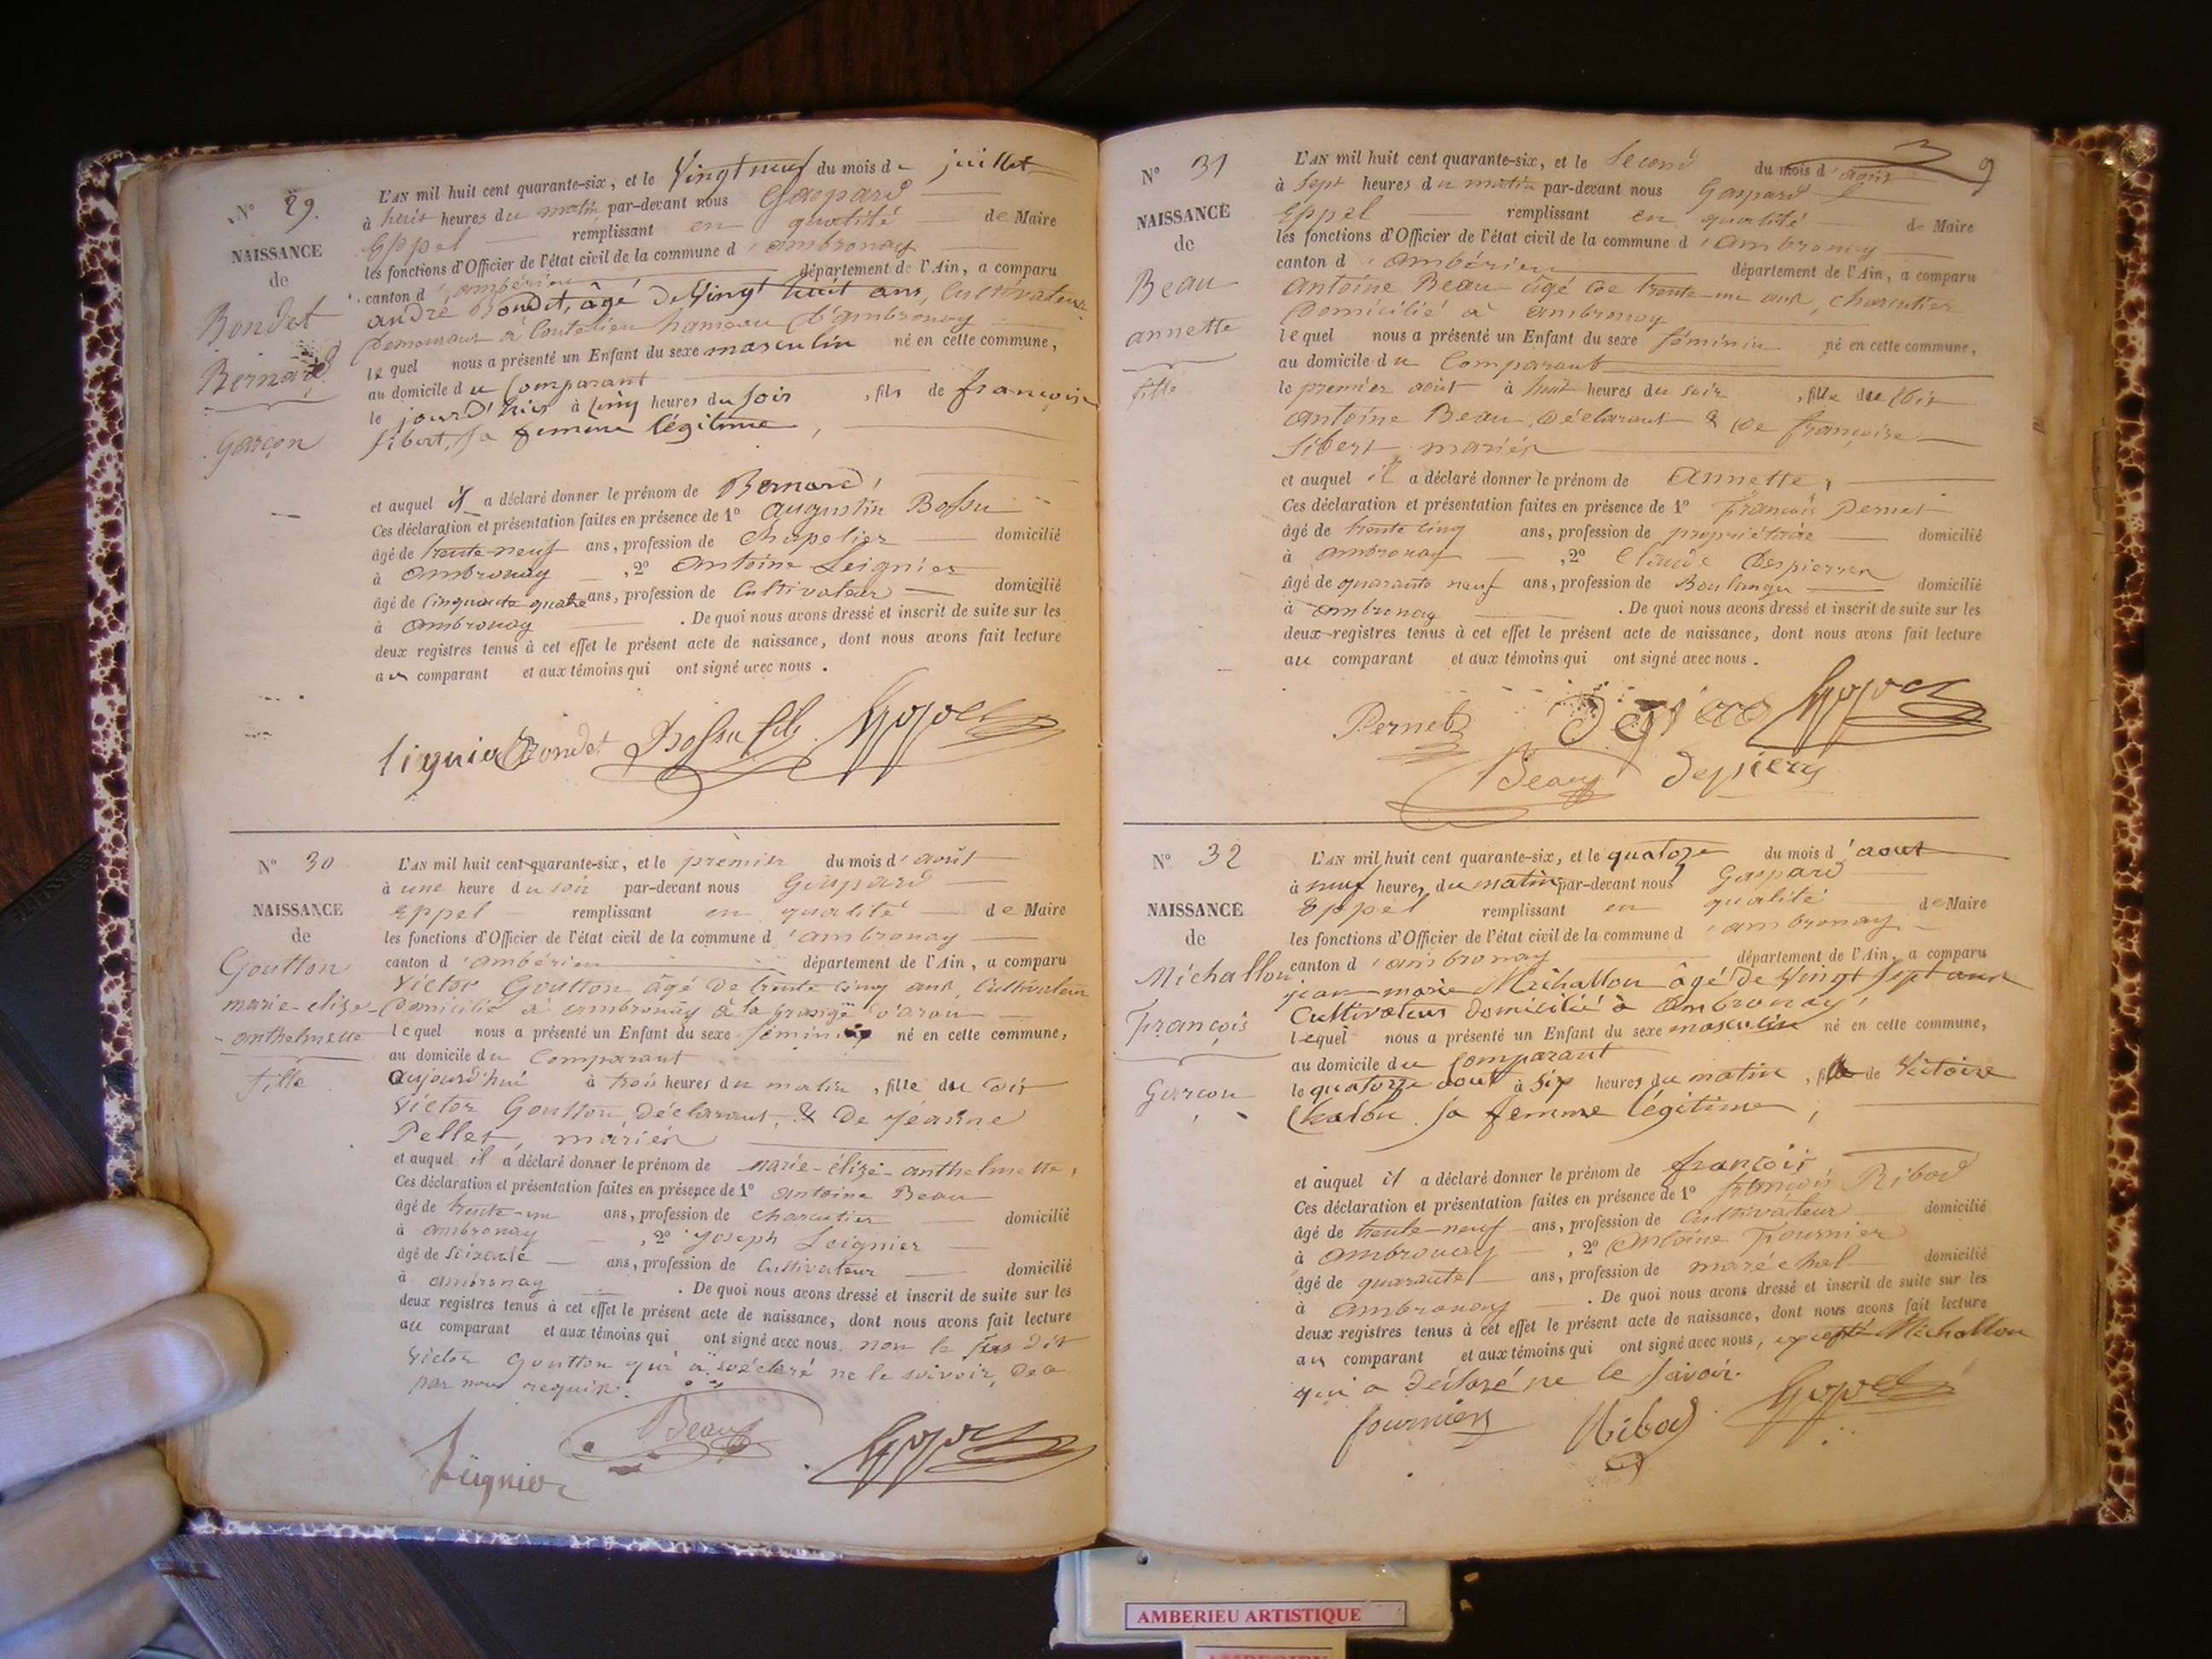 N° 29.
NAISSANCE
de
Bondet
Bernard
garçon
L'AN mil huit cent quarante-six, et le Vingt neuf du mois de juillet
à huit heures du matin par-devant nous Gaspard
Eppel remplissant en qualité de Maire
les fonctions d'Officier de l'état civil de la commune d'ambronay
canton d'ambérieu département de l'Ain, a comparu
andré Bondet, âgé de Vingt huit ans, Cultivateur
demeurant à Coutelieu hameau d'ambronay
lequel nous a présenté un Enfant du sexe masculin né en cette commune,
au domicile du Comparant
le jourd'hier à Cinq heures du soir, fils de françoise
Sibert, sa femme légitime,
et auquel il a déclaré donner le prénom de Bernard,
Ces déclaration et présentation faites en présence de 1° augustin Bossu
âgé de trente-neuf ans, profession de Chapelier domicilié
à ambronay, 2° antoine Leignier
âgé de Cinquante quatre ans, profession de Cultivateur domicilié
à ambronay. De quoi nous avons dressé et inscrit de suite sur les
deux registres tenus à cet effet le présent acte de naissance, dont nous avons fait lecture
au comparant et aux témoins qui ont signé avec nous.
liguier Bondet Bossu fils Eppel
N° 30
NAISSANCE
de
Goutton
marie-elize-
anthelmette
fille
L'AN mil huit cent quarante-six, et le premier du mois d'août
à une heure du soir par-devant nous Gaspard
Eppel remplissant en qualité de Maire
les fonctions d'Officier de l'état civil de la commune d'ambronay
canton d'ambérieu département de l'Ain, a comparu
Victor Goutton âgé de trente cinq ans, Cultivateur
domicilié à ambronay à la grange d'arou
lequel nous a présenté un Enfant du sexe féminin né en cette commune,
au domicile du Comparant
aujourd'hui à trois heures du matin, fille du dit
Victor Goutton, déclarant, & de jeanne
Pellet, mariés
et auquel il a déclaré donner le prénom de marie-élize-anthelmette,
Ces déclaration et présentation faites en présence de 1° antoine Beau
âgé de trente-un ans, profession de charcutier domicilié
à ambronay, 2° joseph Leignier
âgé de soixante ans, profession de Cultivateur domicilié
à ambronay. De quoi nous avons dressé et inscrit de suite sur les
deux registres tenus à cet effet le présent acte de naissance, dont nous avons fait lecture
au comparant et aux témoins qui ont signé avec nous. non le dit
Victor Goutton qui a déclaré ne le savoir, de ce
par nous requis.
Leignier Beau Eppel
N° 31
NAISSANCE
de
Beau
annette
fille
9
L'AN mil huit cent quarante-six, et le second du mois d'août
à sept heures du matin par-devant nous Gaspard
Eppel remplissant en qualité de Maire
les fonctions d'Officier de l'état civil de la commune d'ambronay
canton d'ambérieu département de l'Ain, a comparu
antoine Beau âgé de trente-un ans, charcutier
domicilié à ambronay
lequel nous a présenté un Enfant du sexe féminin né en cette commune,
au domicile du Comparant
le premier août à huit heures du soir, fille du dit
antoine Beau, déclarant & de françoise
Sibert mariés
et auquel il a déclaré donner le prénom de annette,
Ces déclaration et présentation faites en présence de 1° françois Pernet
âgé de trente cinq ans, profession de propriétaire domicilié
à ambronay, 2° Claude Despierres
âgé de quarante neuf ans, profession de Boulanger domicilié
à ambronay. De quoi nous avons dressé et inscrit de suite sur les
deux registres tenus à cet effet le présent acte de naissance, dont nous avons fait lecture
au comparant et aux témoins qui ont signé avec nous.
Pernet Eppel
Beau depierres
N° 32
NAISSANCE
de
Michallon
François
Garçon
L'AN mil huit cent quarante-six, et le quatorze du mois d'aout
à neuf heures du matin par-devant nous Gaspard
Eppel remplissant en qualité de Maire
les fonctions d'Officier de l'état civil de la commune d'ambronay
canton d'ambronay département de l'Ain, a comparu
jean-marie Michallon âgé de Vingt sept ans
Cultivateur domicilié à ambronay,
lequel nous a présenté un Enfant du sexe masculin né en cette commune,
au domicile du Comparant
le quatorze aout à six heures du matin, fils de Victoire
Chalon sa femme légitime,
et auquel il a déclaré donner le prénom de françois
Ces déclaration et présentation faites en présence de 1° françois Ribod
âgé de trente-neuf ans, profession de Cultivateur domicilié
à ambronay, 2° antoine Fournier
âgé de quarante ans, profession de maréchal domicilié
à ambronay. De quoi nous avons dressé et inscrit de suite sur les
deux registres tenus à cet effet le présent acte de naissance, dont nous avons fait lecture
au comparant et aux témoins qui ont signé avec nous, excepté Michallon
qui a déclaré ne le savoir.
fournier Ribod Eppel
AMBERIEU ARTISTIQUE